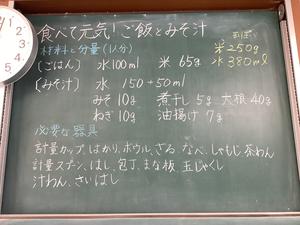 食べて元気!ご飯とみそ汁
材料と分量(1人分)
米250g
(ごはん) 水100ml 米65g
水380ml
(みそ汁) 水 150+50ml
みそ10g 煮干し5g 大根40g
ねぎ10g 油揚げ7g
必要な器具
計量カップ、はかり、ボウル、ざる、なべ、しゃもじ、茶わん
計量スプーン、はし、包丁、まな板、玉じゃくし
汁わん、さいばし
1
2
3
4
5